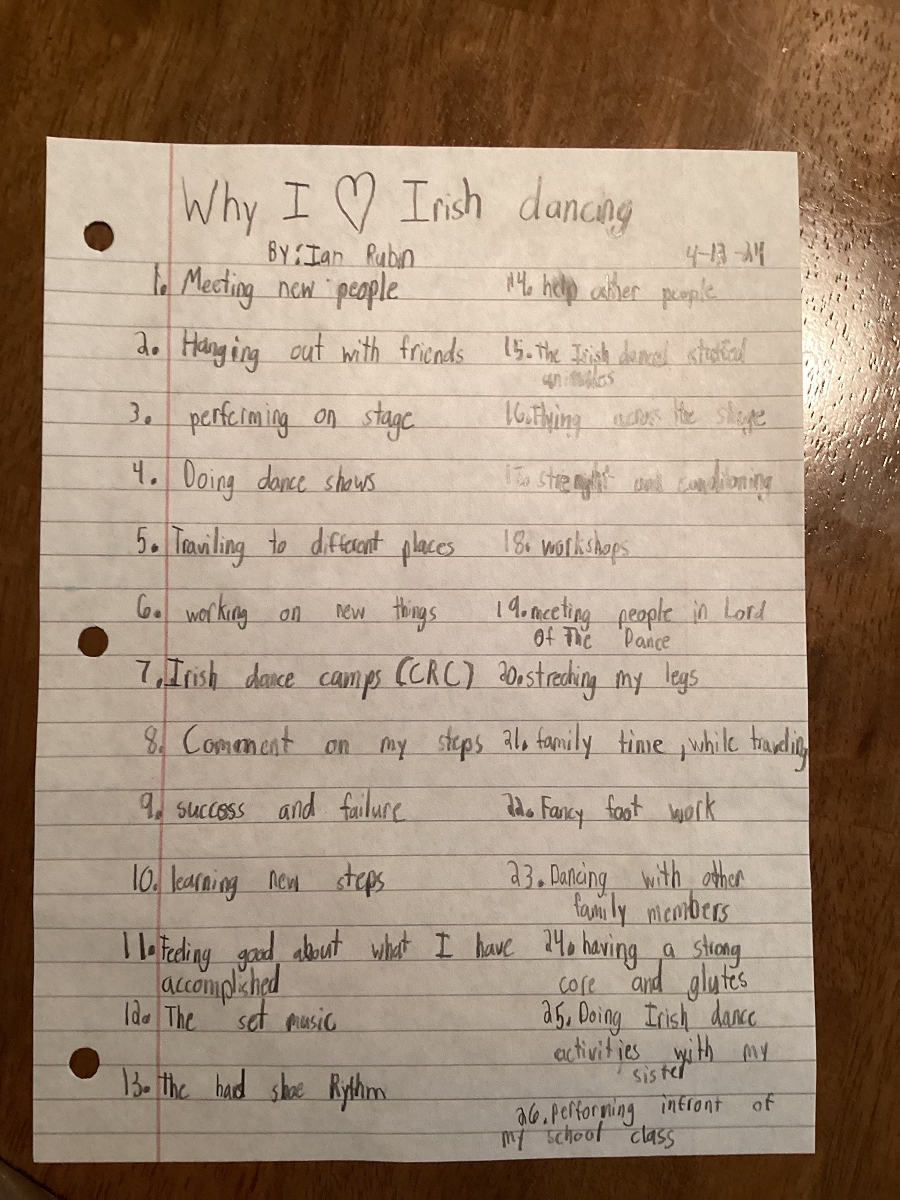 Why I ♡ Irish dancing
BY: Ian Rubin 4-13-24
1. Meeting new people
2. Hanging out with friends
3. performing on stage
4. Doing dance shows
5. Traviling to different places
6. working on new things
7. Irish dance camps (CRC)
8. Comment on my steps
9. success and failure
10. learning new steps
11. Feeling good about what I have
accomplished
12. The set music
13. the hard shoe Rythm
14. help other people
15. The Irish dance stuffed
16. Flying across the stage
17. and conditioning
18. workshops
19. meeting people in Lord
Of The Dance
20. streching my legs
21. family time, while traveling
22. Fancy foot work
23. Dancing with other
family members
24. having a strong
core and glutes
25. Doing Irish dance
activities with my
sister
26. Performing infront of
my school class